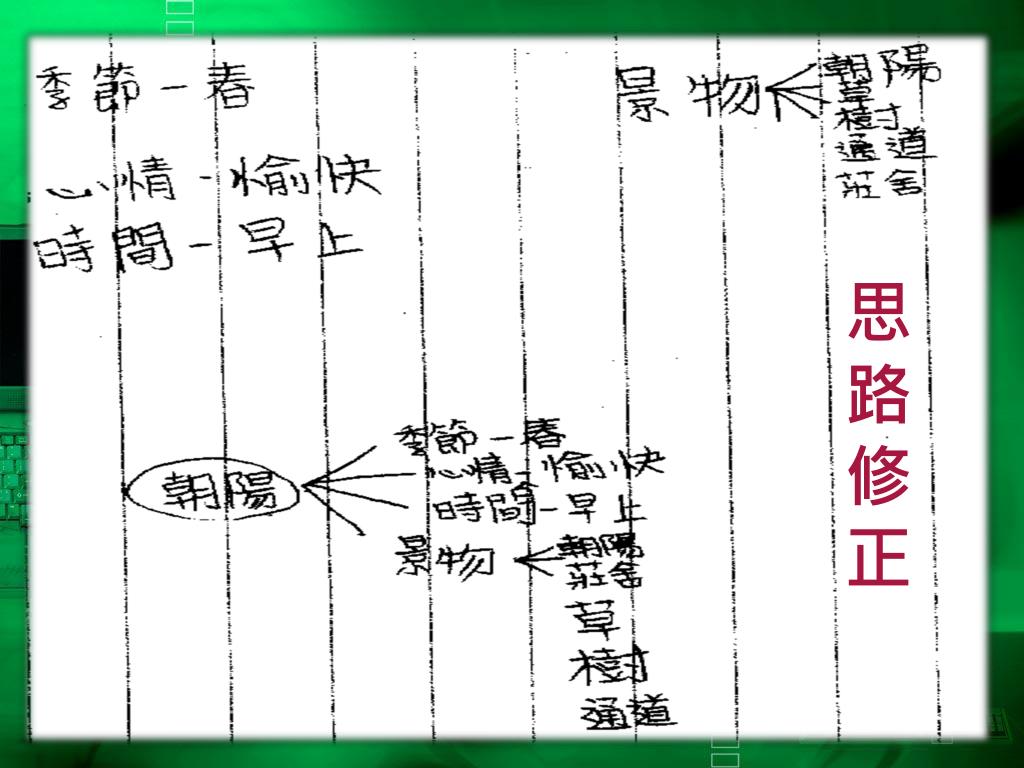 季節－春
心情－愉快
時間－早上
景物
朝陽
草
樹
通道
莊舍
思路修正
朝陽
季節－春
心情－愉快
時間－早上
景物
朝陽
莊舍
草
樹
通道